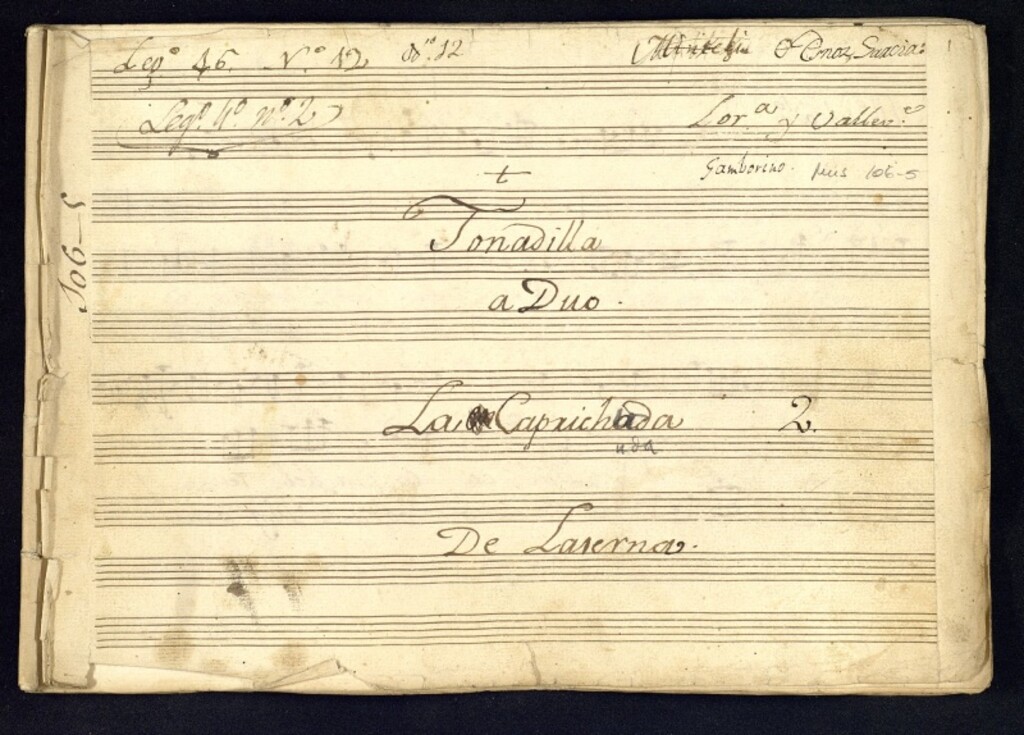 Leg.º 46. N.º 12
Leg.º 4º. nº. 2
Lor.ª y Vallev.º
t
Gamborino. Mus 106-5
106-5
Tonadilla
a Duo.
La Caprichada 2.
uda
De Laserna.